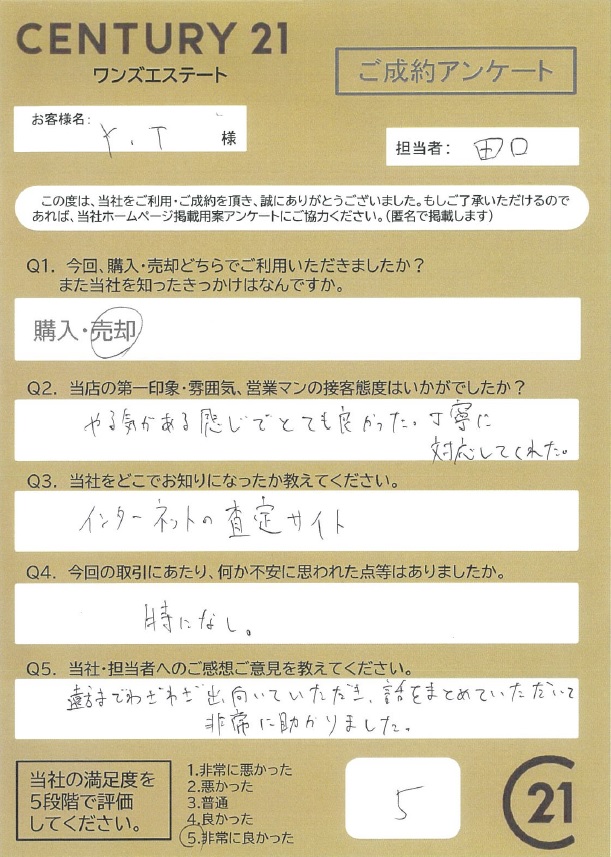 CENTURY 21
ワンズエステート
ご成約アンケート
お客様名:
Y.T 様
担当者: 田口
この度は、当社をご利用・ご成約を頂き、誠にありがとうございました。もしご了承いただけるので
あれば、当社ホームページ掲載用案アンケートにご協力ください。(匿名で掲載します)
Q1. 今回、購入・売却どちらでご利用いただきましたか?
また当社を知ったきっかけはなんですか。
購入・売却
Q2. 当店の第一印象・雰囲気、営業マンの接客態度はいかがでしたか?
やる気がある感じでとても良かった。丁寧に
対応してくれた。
Q3. 当社をどこでお知りになったか教えてください。
インターネットの査定サイト
Q4. 今回の取引にあたり、何か不安に思われた点等はありましたか。
特になし。
Q5. 当社・担当者へのご感想ご意見を教えてください。
遠方までわざわざ出向いていただき、話をまとめていただいて
非常に助かりました。
当社の満足度を
5段階で評価
してください。
1.非常に悪かった
2.悪かった
3.普通
4.良かった
5.非常に良かった
5
21